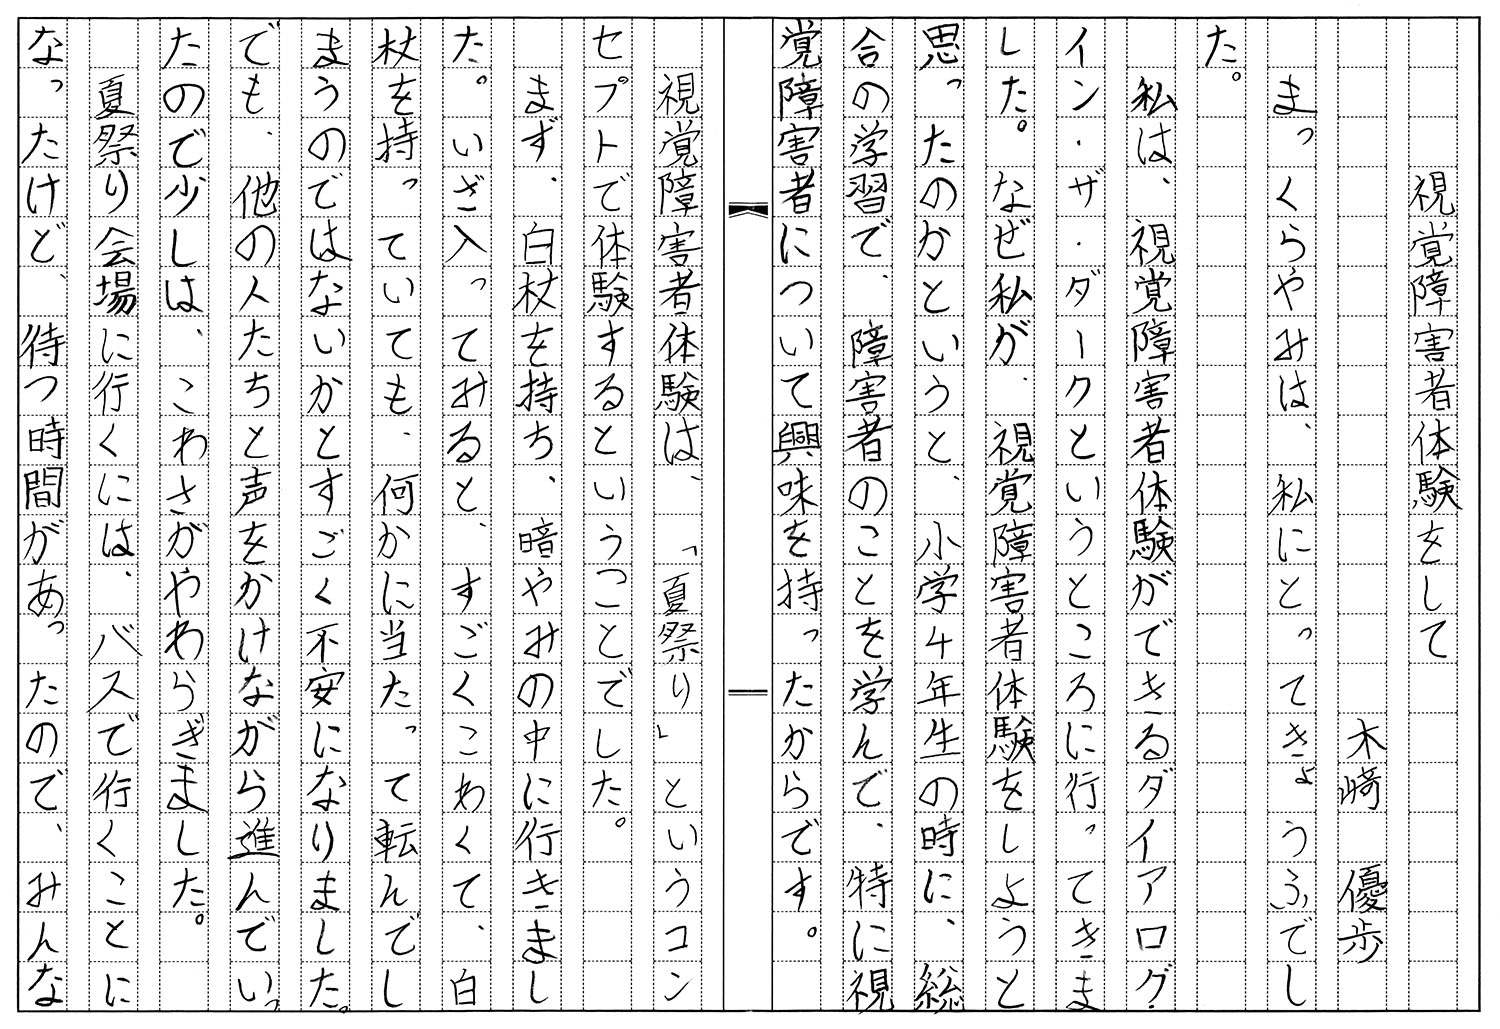 視覚障害者体験をして
木﨑　優歩
まっくらやみは、私にとってきょうふでし
た。
私は、視覚障害者体験ができるダイアログ・
イン・ザ・ダークというところに行ってきま
した。なぜ私が、視覚障害者体験をしようと
思ったのかというと、小学4年生の時に、総
合の学習で、障害者のことを学んで、特に視
覚障害者について興味を持ったからです。
視覚障害者体験は、「夏祭り」というコン
セプトで体験するということでした。
まず、白杖を持ち、暗やみの中に行きまし
た。いざ入ってみると、すごくこわくて、白
杖を持っていても、何かに当たって転んでし
まうのではないかとすごく不安になりました。
でも、他の人たちと声をかけながら進んでいっ
たので少しは、こわさがやわらぎました。
夏祭り会場に行くには、バスで行くことに
なったけど、待つ時間があったので、みんな